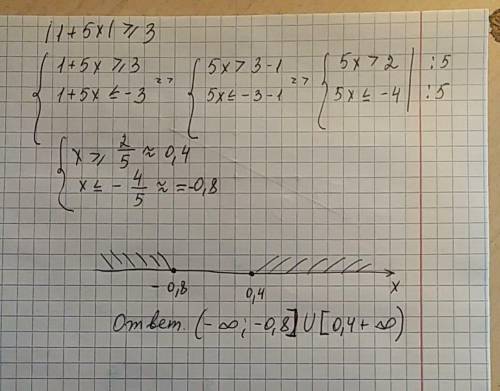 |1+5x| ⩾ 3
{ 1+5x ⩾ 3 => { 5x > 3-1 => { 5x > 2 | :5
{ 1+5x ≤ -3 { 5x ≤ -3-1 { 5x ≤ -4 | :5
{ x ⩾ 2/5 ≈ 0,4
{ x ≤ - 4/5 ≈ = -0,8
-0,8 0,4 x
Ответ. (-∞; -0,8] U [0,4 + ∞)